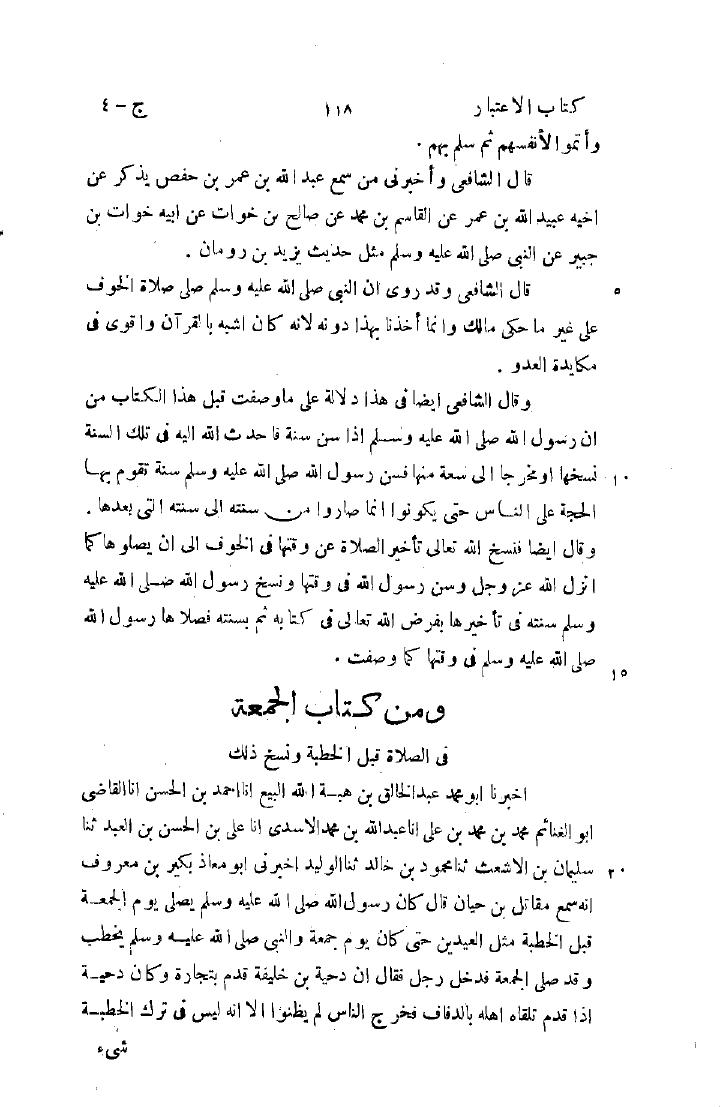 كتاب الاعتبار ١١٨ ج - ٤
وأتموا لأنفسهم ثم سلم بهم .
قال الشافعى وأخبرنى من سمع عبد الله بن عمر بن حفص يذكر عن
اخيه عبيد الله بن عمر عن القاسم بن محمد عن صالح بن خوات عن ابيه خوات بن
جبير عن النبى صلى الله عليه وسلم مثل حديث يزيد بن رومان .
قال الشافعى وقد روى ان النبى صلى الله عليه وسلم صلى صلاة الخوف ٥
على غير ما حكى مالك وانما أخذنا بهذا دونه لانه كان اشبه بالقرآن واقوى فى
مكايدة العدو .
وقال الشافعى ايضا فى هذا دلالة على ماوصفت قبل هذا الكتاب من
ان رسول الله صلى الله عليه وسلم اذا سن سنة فاحدث الله اليه فى تلك السنة
نسخها اومخرجا الى سعة منها فسن رسول الله صلى الله عليه وسلم سنة تقوم بها ١٠
الحجة على الناس حتى يكونوا انما صاروا من سنته الى سنته التى بعدها .
وقال ايضا فنسخ الله تعالى تأخير الصلاة عن وقتها فى الخوف الى ان يصلوها كما
انزل الله عز وجل وسن رسول الله فى وقتها ونسخ رسول الله صلى الله عليه
وسلم سنته فى تأخيرها بفرض الله تعالى فى كتابه ثم بسنته فصلاها رسول الله
صلى الله عليه وسلم فى وقتها كما وصفت . ١٥
ومن كتاب الجمعة
فى الصلاة قبل الخطبة ونسخ ذلك
اخبرنا ابو محمد عبدالخالق بن هبة الله البيع انااحمد بن الحسن اناالقاضى
ابو الغنائم محمد بن محمد بن على اناعبدالله بن محمدالاسدى انا على بن الحسن بن العبد ثنا
سليمان بن الاشعث ثنامحمود بن خالد ثناالوليد اخبرنى ابو معاذ بكير بن معروف ٢٠
انه سمع مقاتل بن حيان قال كان رسول الله صلى الله عليه وسلم يصلى يوم الجمعة
قبل الخطبة مثل العيدين حتى كان يوم جمعة والنبى صلى الله عليه وسلم يخطب
وقد صلى الجمعة فدخل رجل فقال ان دحية بن خليفة قدم بتجارة وكان دحية
اذا قدم تلقاه اهله بالدفاف فخرج الناس لم يظنوا الا انه ليس فى ترك الخطبة
شىء